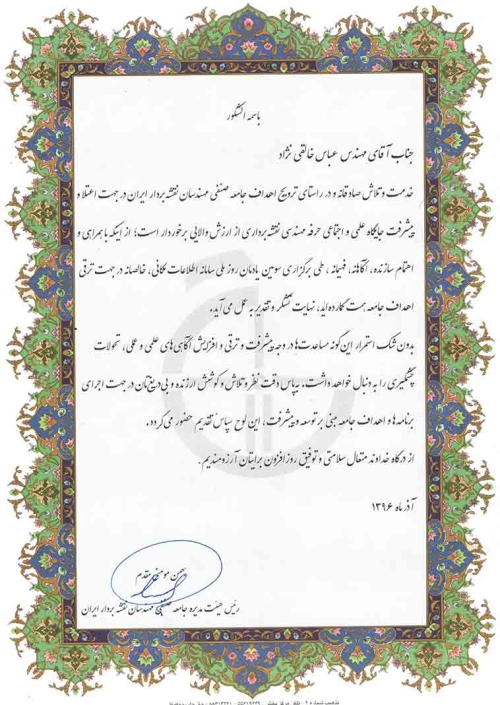 باسمه الشکور
جناب آقای مهندس عباس خالقی نژاد
خدمت و تلاش صادقانه و در راستای ترویج اهداف جامعه صنفی مهندسان نقشه بردار ایران در جهت اعتلا و
پیشرفت جایگاه علمی و اجتماعی حرفه مهندسی نقشه برداری از ارزش والایی برخوردار است؛ از اینکه با همراهی و
اهتمام سازنده، آگاهانه، فهیمانه، طی برگزاری سومین یادمان روز ملی سامانه اطلاعات مکانی، خالصانه در جهت ترقی
اهداف جامعه همت گمارده اید، نهایت تشکر و تقدیر به عمل می آید.
بدون شک استمرار این گونه مساعدت ها در وجه پیشرفت و ترقی و افزایش آگاهی های علمی و عملی، تحولات
چشمگیری را به دنبال خواهد داشت. به پاس دقت نظر و تلاش و کوشش ارزنده و بی دریغتان در جهت اجرای
برنامه ها و اهداف جامعه مبنی بر توسعه و پیشرفت، این لوح سپاس تقدیم حضور می گردد.
از درگاه خداوند متعال سلامتی و توفیق روز افزون برایتان آرزومندیم.
آذر ماه ۱۳۹۶
بهمن مومنی مقدم
رئیس هیئت مدیره جامعه صنفی مهندسان نقشه بردار ایران